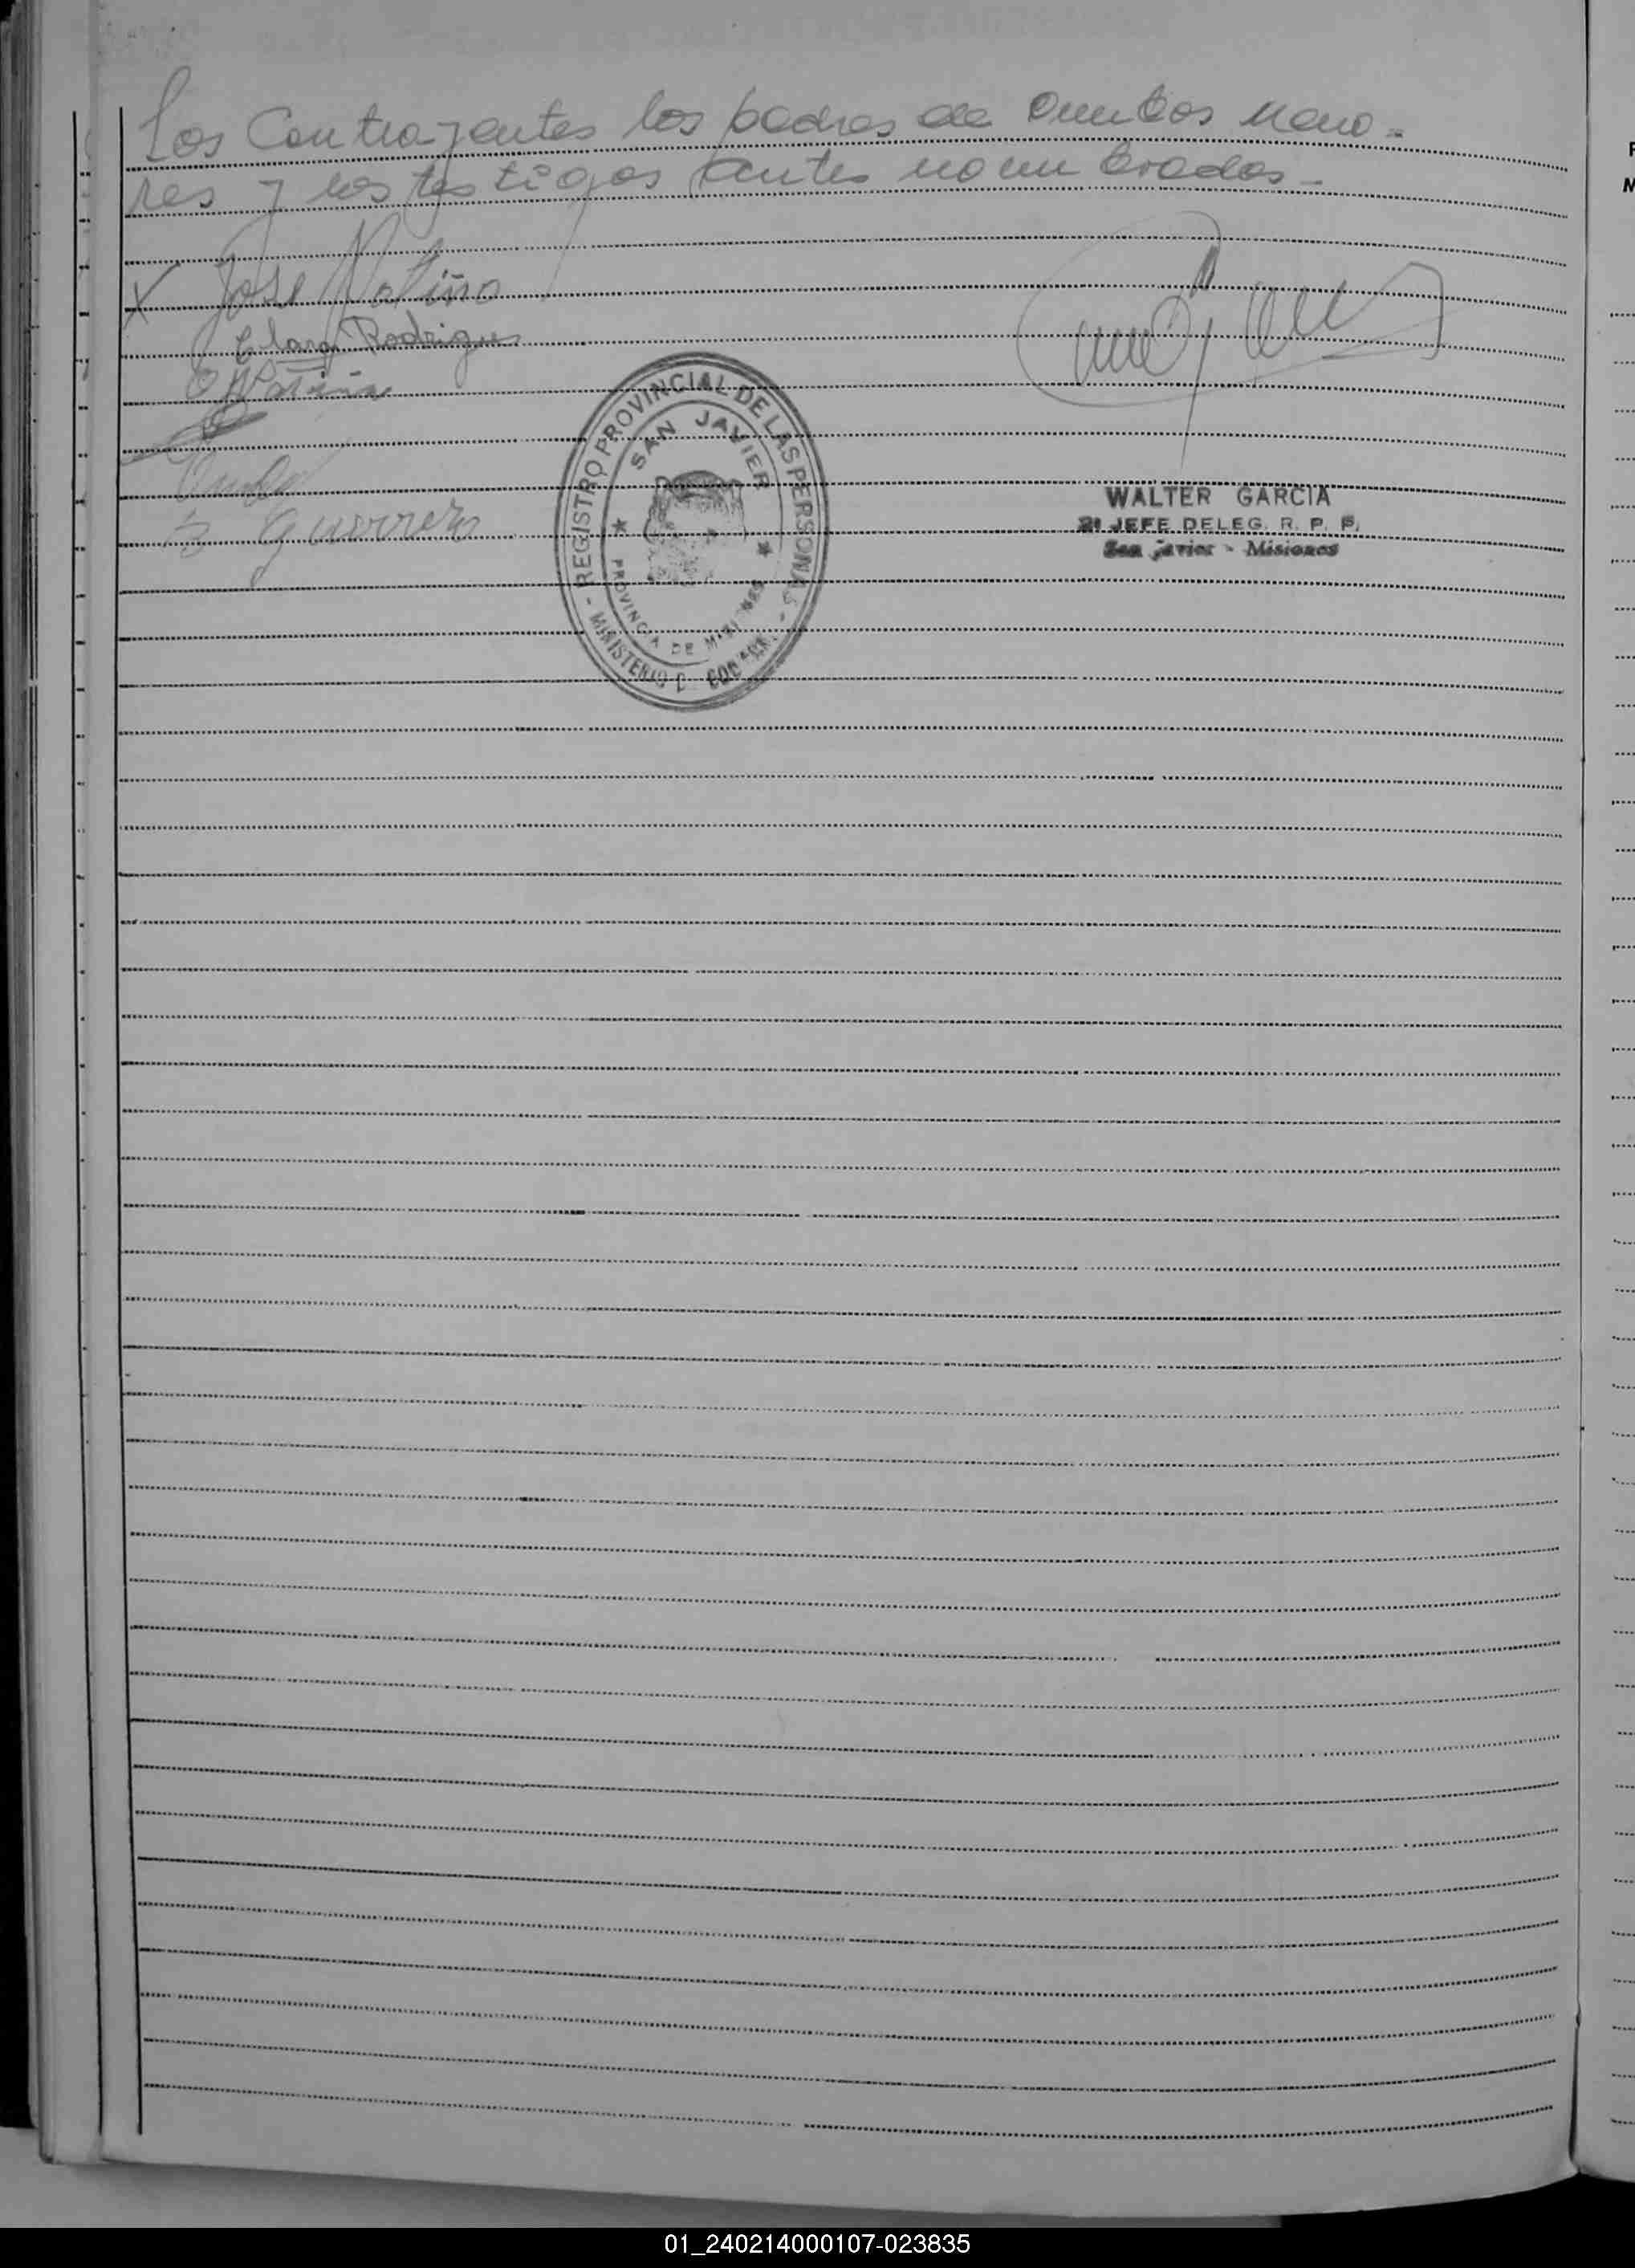 Los Contrayentes los padres de ambos meno-
res y los testigos antes nombrados-
X Jose Patiño
Clara Rodrigues
Patiño
Guerrero
REGISTRO PROVINCIAL DE LAS PERSONAS
SAN JAVIER
PROVINCIA DE MISIONES
MINISTERIO
WALTER GARCIA
JEFE DELEG. R. P. P.
San Javier - Misiones
01_240214000107-023835